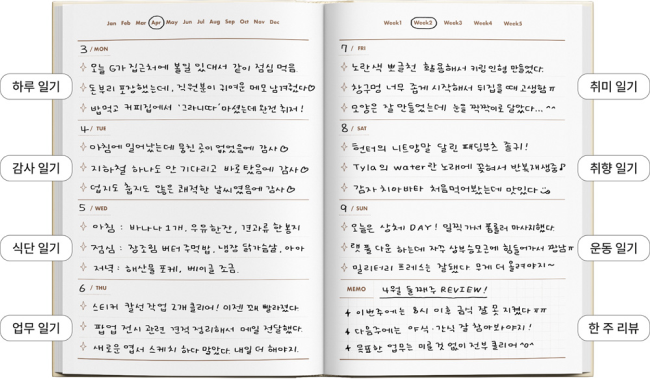 Jan Feb Mar Apr May Jun Jul Aug Sep Oct Nov Dec
3 / MON
오늘 G가 집근처에 볼일 있대서 같이 점심 먹음.
돈부리 포장했는데, 직원분이 귀여운 메모 남겨줬다♡
밥먹고 커피집에서 '그라니따' 마셨는데 완전 취저!
4 / TUE
아침에 일어났는데 뭉친곳이 없었음에 감사♡
지하철 하나도 안 기다리고 바로 탔음에 감사♡
덥지도 춥지도 않은 쾌적한 날씨였음에 감사♡
5 / WED
아침 : 바나나 1개, 우유한잔, 견과류 한봉지
점심 : 장조림 버터 주먹밥, 냉장 닭가슴살, 아아
저녁 : 해산물 포케, 베이글 조금.
6 / THU
스티커 칼선 작업 2개 클리어! 이젠 꽤 빨라졌다.
팝업 전시 관련 견적 정리해서 메일 전달했다.
새로운 엽서 스케치 하다 말았다. 내일 더 해야지.
하루 일기
감사 일기
식단 일기
업무 일기
Week1 Week2 Week3 Week4 Week5
7 / FRI
노란색 뽀글천 활용해서 키링 인형 만들었다.
창구멍 너무 좁게 시작해서 뒤집을 때 고생함ㅠ
모양은 잘 만들었는데 눈을 짝짝이로 달았다... ^^
8 / SAT
헌터의 니트양말 달린 패딩부츠 즐겨!
Tyla의 water란 노래에 꽂혀서 반복재생중♪
감자 치아바타 처음먹어봤는데 맛있다
9 / SUN
오늘은 상체 DAY! 일찍 가서 폼롤러 마사지했다.
랫 풀 다운 하는데 자꾸 상부승모근에 힘들어가서 망함ㅠ
밀리터리 프레스는 잘했다 무게 더 올려야지~
MEMO 4월 둘째주 REVIEW!
4 이번주에는 8시 이후 금식 잘 못 지켰다ㅠㅠ
4 다음주에는 야식·간식 잘 참아봐야지!
4 목표한 업무는 미룰것 없이 전부 클리어^o^
취미 일기
취향 일기
운동 일기
한 주 리뷰